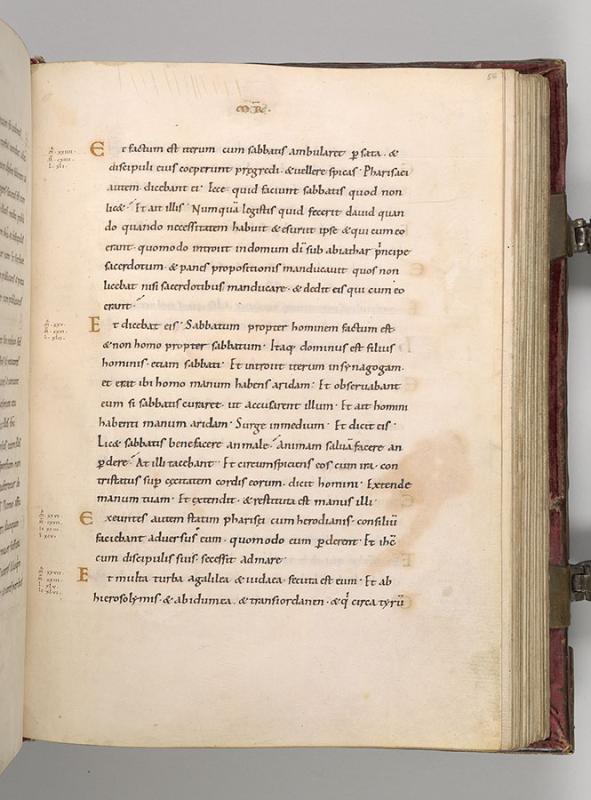 56
MR̅
Et factum est iterum cum sabbatis ambularet p̱ sata · &
discipuli eius coeperunt progredi · & vellere spicas · Pharisaei
autem dicebant ei · Ecce quid faciunt sabbatis quod non
lic& · Et ait illis · Numquā legistis quid fecerit dauid quan
do quando necessitatem habuit & esuriit ipse & qui cum eo
erant · quomodo introiit in domum dī sub abiathar p̄ncipe
sacerdotum · & panes propositionis manducauit quos non
licebat nisi sacerdotibus manducare · & dedit eis qui cum eo
erant ·
Et dicebat eis · Sabbatum propter hominem factum est ·
& non homo propter sabbatum · Itaq· dominus est filius
hominis · etiam sabbati · Et introiit iterum in synagogam ·
et erat ibi homo manum habens aridam · Et obseruabant
eum si sabbatis curaret · ut accusarent illum · Et ait homini
habenti manum aridam · Surge in medium · Et dicit eis ·
Lic& sabbatis bene facere an male · Animam saluā facere an
p̱dere · At illi tacebant · Et circumspiciens eos cum ira · con
tristatus sup̱ cęcitatem cordis eorum · dicit homini · Extende
manum tuam · Et extendit · & restituta est manus illi ·
Exeuntes autem statim pharisei cum herodianis · consiliū
faciebant aduersus eum · quomodo eum p̱derent · Et ihō
cum discipulis suis · secessit ad mare ·
Et multa turba a galilea & iudaea · secuta est eum · Et ab
hierosolymis · & ab idumea · & transiordanen · & q' circa tyrū